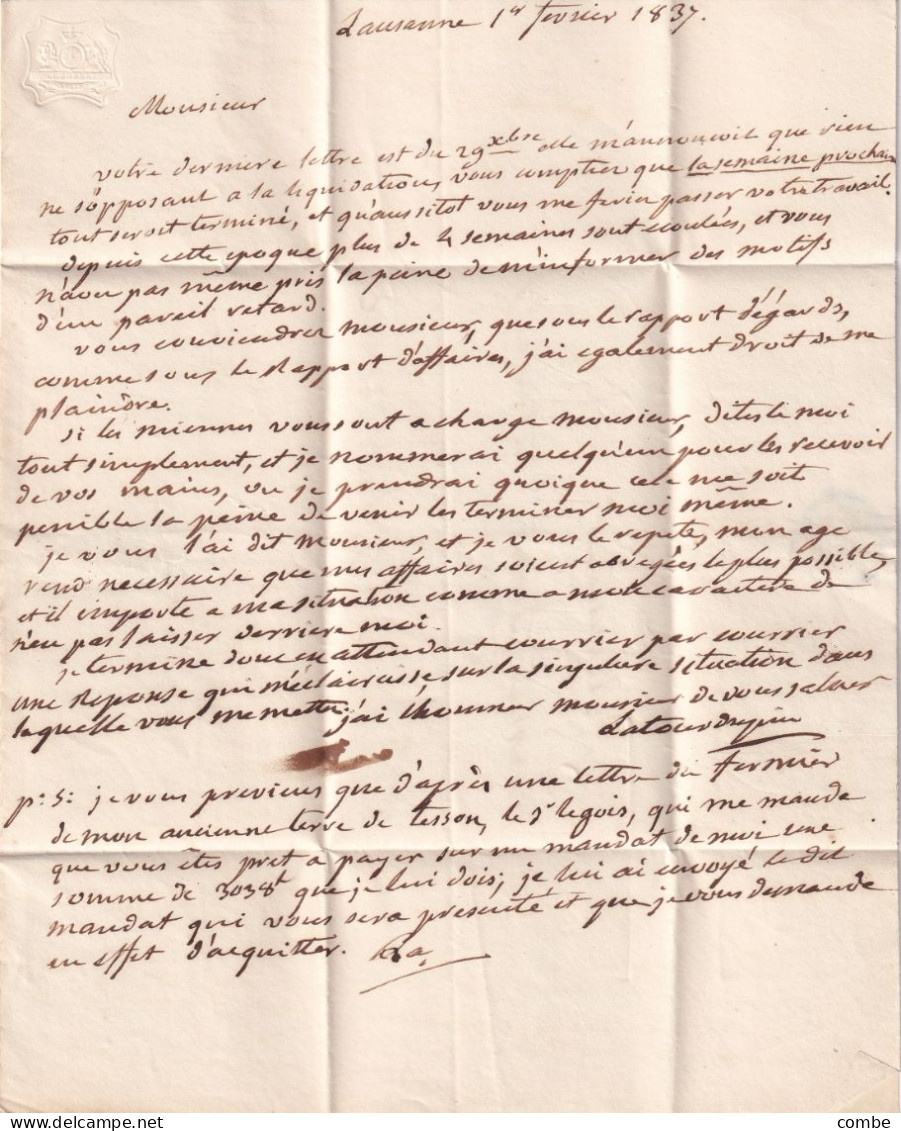 Lausanne 1er fevrier 1837.
Monsieur
votre derniere lettre est du 29 xbre elle m'annonçoit que rien
ne s'opposant a la liquidation, vous comptiez que la semaine prochaine
tout seroit terminé, et qu'aussitot vous me feriez passer votre travail.
depuis cette epoque plus de 4 semaines sont ecoulées, et vous
n'avez pas même pris la peine de m'informer des motifs
d'un pareil retard.
vous conviendrez monsieur, que sous le rapport d'égards,
comme sous le rapport d'affaires, j'ai egalement droit de me
plaindre.
si les miennes vous sont a charge monsieur, dites le moi
tout simplement, et je nommerai quelqu'un pour les recevoir
de vos mains, ou je prendrai quoique cela me soit
penible la peine de venir les terminer moi même.
je vous l'ai dit monsieur, et je vous le repete, mon age
rend necessaire que mes affaires soient abregées le plus possible,
et il importe a ma situation comme a mon caractere de
n'en pas laisser derriere moi.
je termine donc en attendant courrier par courrier
une reponse qui m'éclaircisse sur la singuliere situation dans
laquelle vous me mettez. j'ai l'honneur monsieur de vous saluer
Latourdupin
p: S: je vous previens que d'après une lettre du fermier
de mon ancienne terre de Tesson, le Sr legois, qui me mande
que vous êtes pret a payer sur un mandat de moi une
somme de 3038t que je lui dois; je lui ai envoyé le dit
mandat qui vous sera presenté et que je vous demande
en effet d'acquitter. La
combe